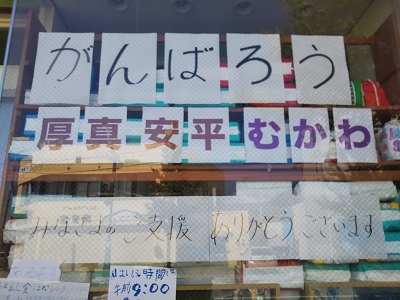 がんばろう
厚真 安平 むかわ
みなさまのご支援 ありがとうございます
時間は
午前9:00